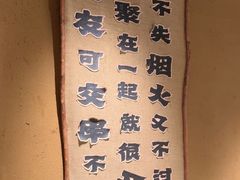 不失烟火又不过
聚在一起就很
友可交串不